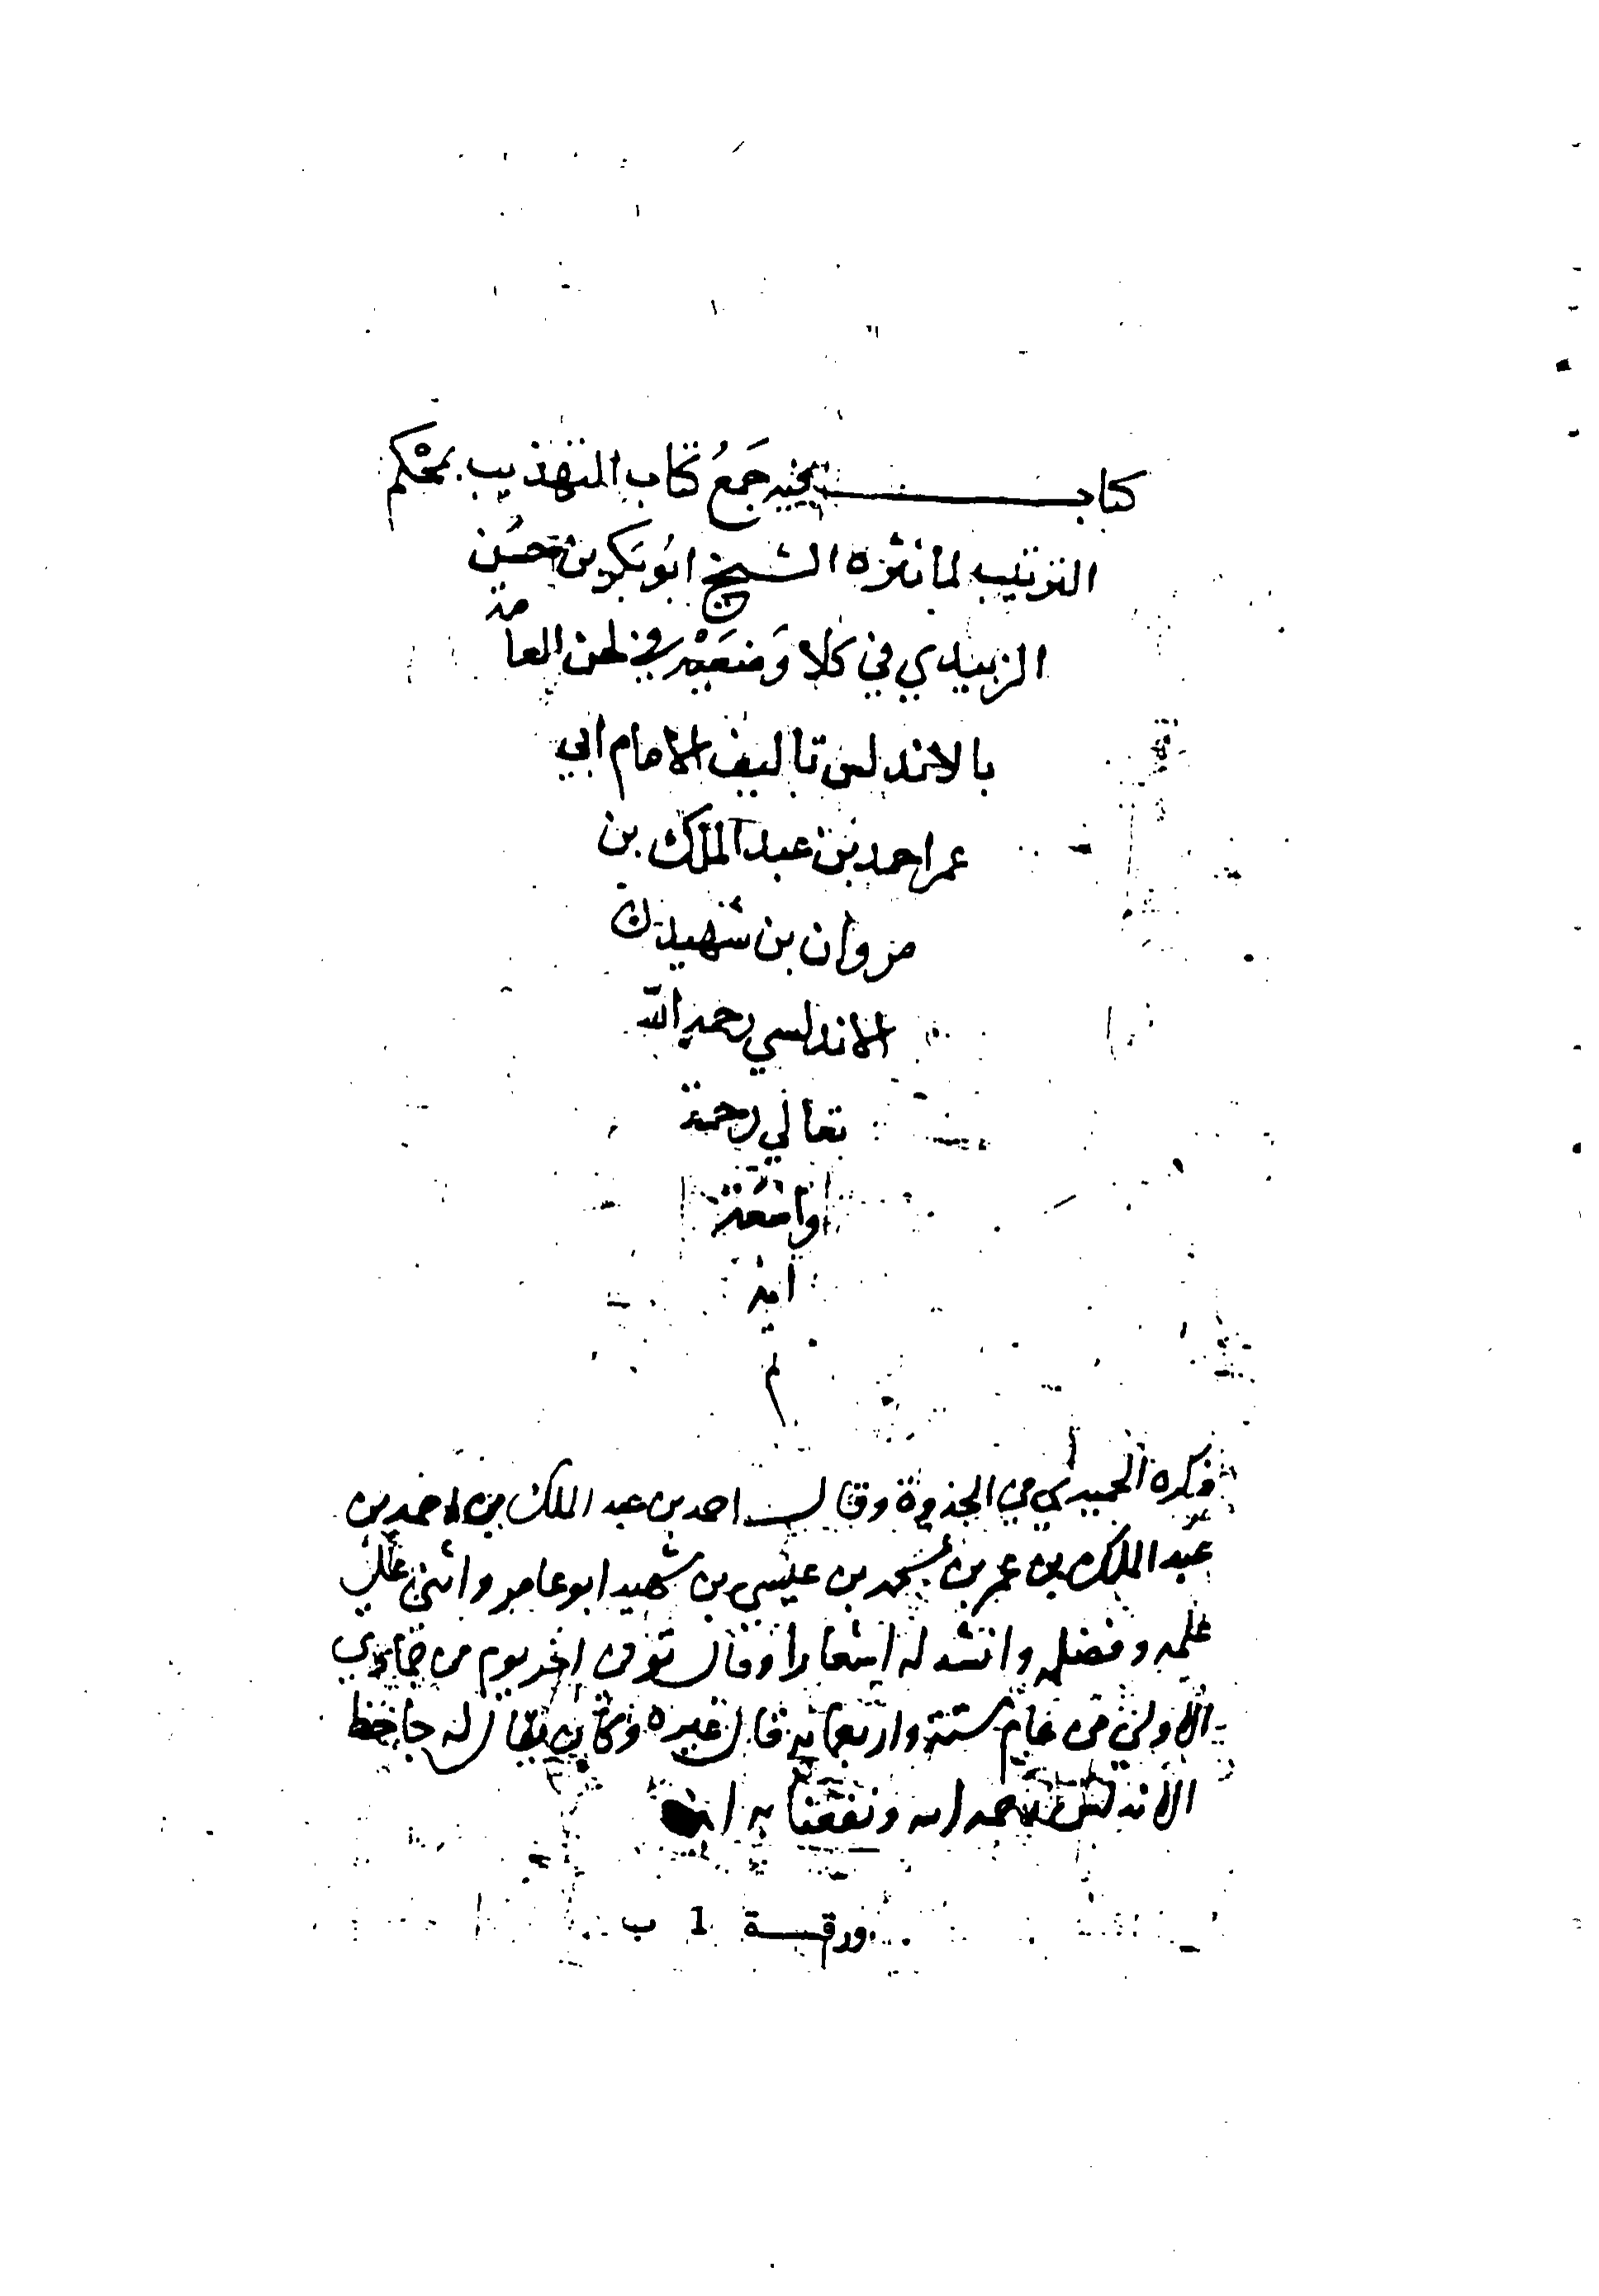 كتاب فيه جمع كتاب التهذيب بمحكم
الترتيب لما نثره الشيخ ابو بكر بن حسن
الزبيدي في كلا وضعيه في لحن العامة
بالاندلس تاليف الامام ابي
عمر احمد بن عبد الملك بن
مروان بن شهيد
الاندلسي رحمه الله
تعالي رحمة
واسعة
امين
م
ذكره الحميدي في الجذوة وقال احمد بن عبد الملك بن احمد بن
عبد الملك بن عمر بن محمد بن عيسى بن شهيد ابو عامر واثنى على
علمه وفضله وانشد له اشعارا وقال توفى اخر يوم من جمادي
الاولى من عام ستة واربعماية قال غيره وكان يقال له جاحظ
الاندلس رحمه الله ونفعنا به
ورقـــة 1 ب